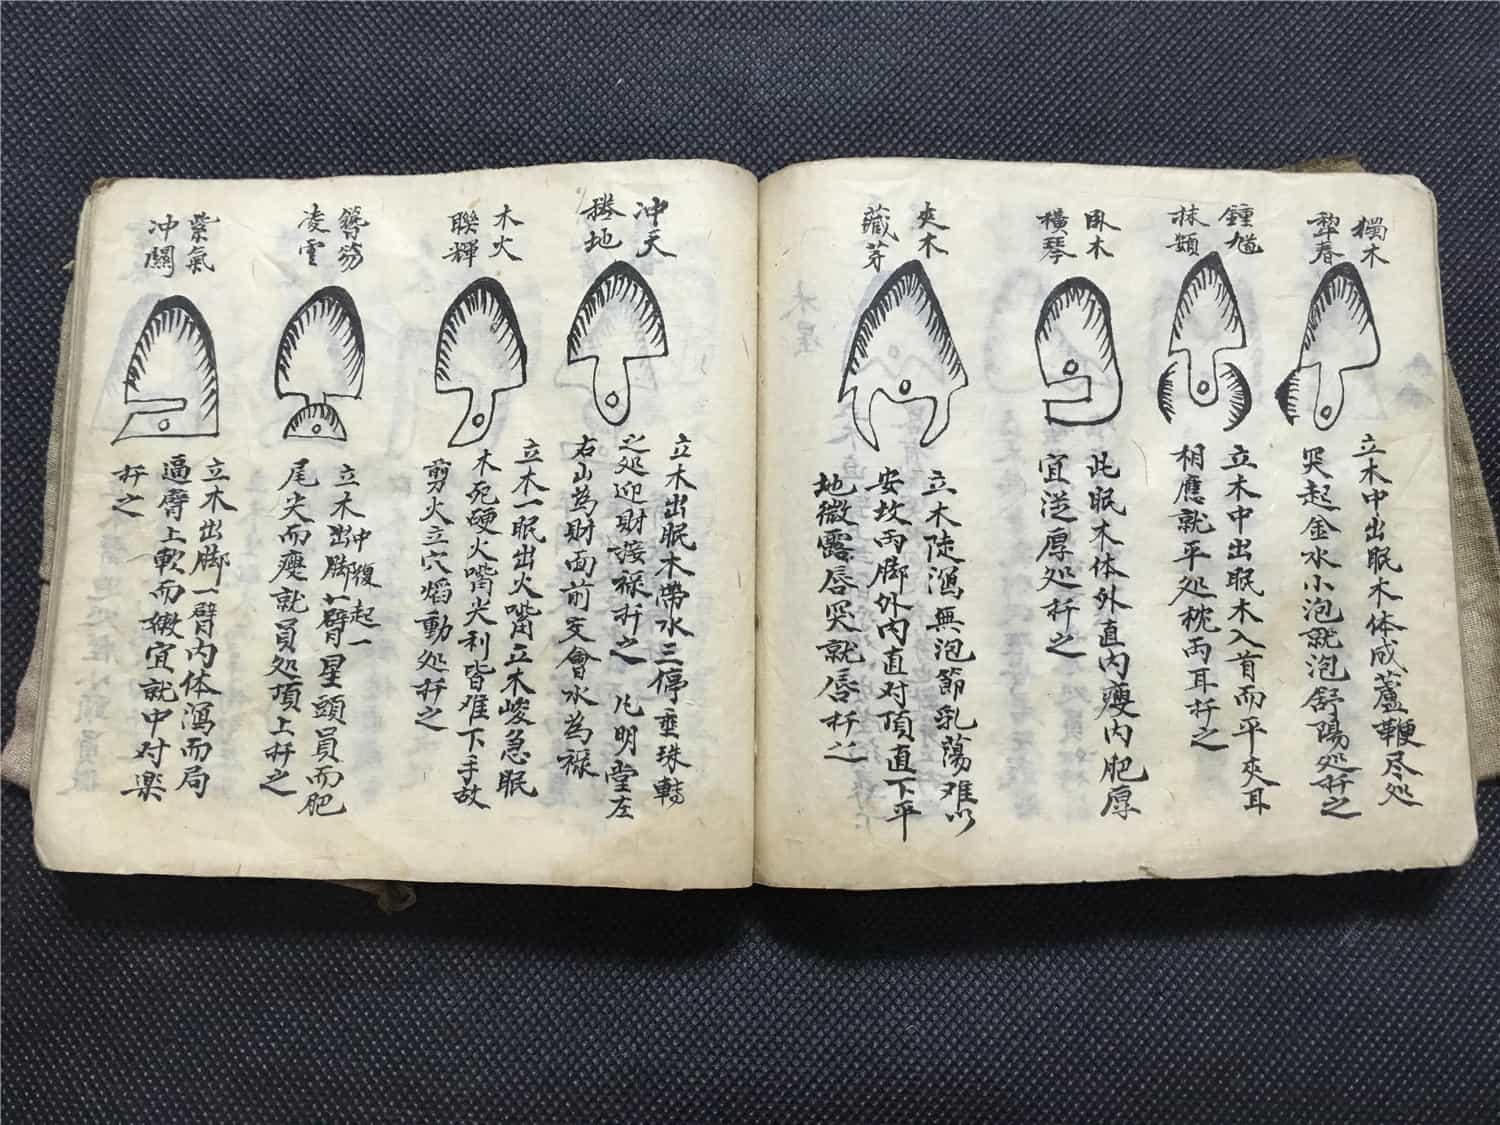 獨木
犂春
立木中出眠木体成蘆鞭尽処
突起金水小泡就泡舒陽処扦之
鍾馗
抹額
立木中出眠木入首而平夾耳
相應就平処枕両耳扦之
臥木
橫琴
此眠木体外直内瘦内肥厚
宜淫厚処扦之
夾木
藏芽
立木陡瀉無泡節乳蕩难以
安坟両脚外内直对頂直下平
地微露唇突就唇扦之
冲天
捲地
立木出眠木帶水三停垂珠轉
之処迎財接禄扦之 凡明堂左
右山為財面前交會水為禄
木火
聯輝
立木一眠出火嘴立木峻急眠
木死硬火嘴尖利皆难下手故
剪火立穴焰動処扦之
凌雲
立木出脚中復起一臂星頭員而肥
尾尖而瘦就員処頂上扦之
紫氣
冲關
立木出脚一臂内体瀉而局
逼臂上軟而嫩宜就中对樂
扦之
木星